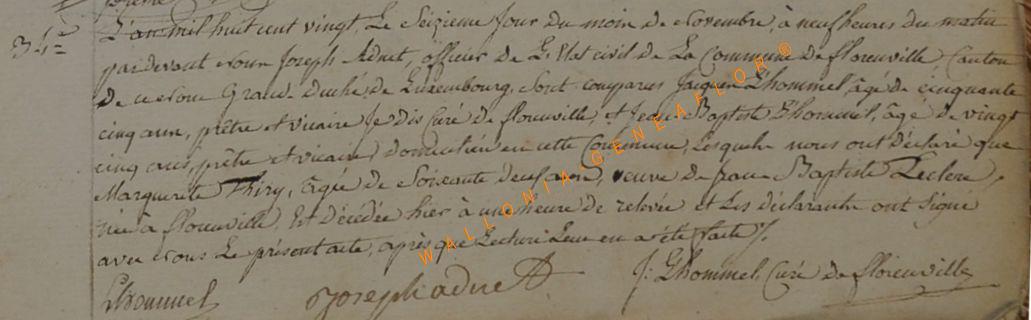 34e
L'an mil huit cent vingt, Le Seizieme Jour du mois de Novembre, à neuf heures du matin
pardevant Nous Joseph Adnet, officier de L'Etat civil de La Commune de florenville, Canton
de ce Nom Grand-Duché de Luxembourg, Sont comparus Jacques Lhommel âgé de cinquante
cinq ans, prêtre et vicaire Je dis Curé de florenville, et Jean Baptiste Lhommel, âgé de vingt
cinq ans, prêtre et vicaire, domiciliés en cette Commune, Lesquels nous ont déclaré que
Marguerite Thiry, âgée de Soixante deux ans, veuve de Baptiste Leclere,
née à florenville, Est Décédée hier à une heure de relevée et Les déclarants ont Signé
avec Nous Le présent acte, après que Lecture Leur en a été faite /.
Lhommel
Joseph adnet
J: Lhommel, Curé de florenville
WALLONIA GENEAFLOR®